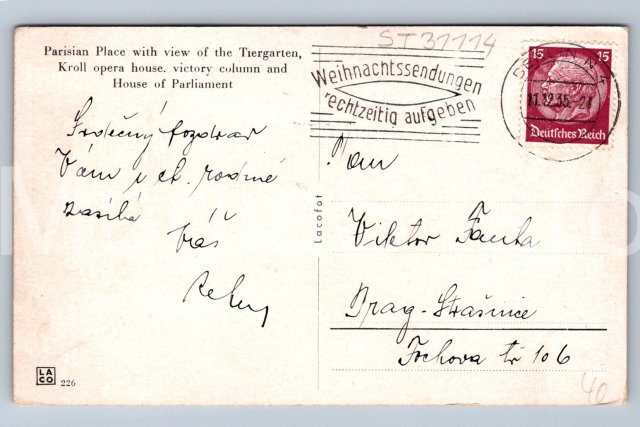 Parisian Place with view of the Tiergarten,
Kroll opera house. victory column and
House of Parliament
ST 31114
Weihnachtssendungen
rechtzeitig aufgeben
15 15
11.12.35
Deutsches Reich
Srdečný pozdrav
Vám i ct. rodině
zasílá
Váš
Pan
Viktor
Prag-Strašnice
Fochova tř 106
Lacofot
LACO
226
40